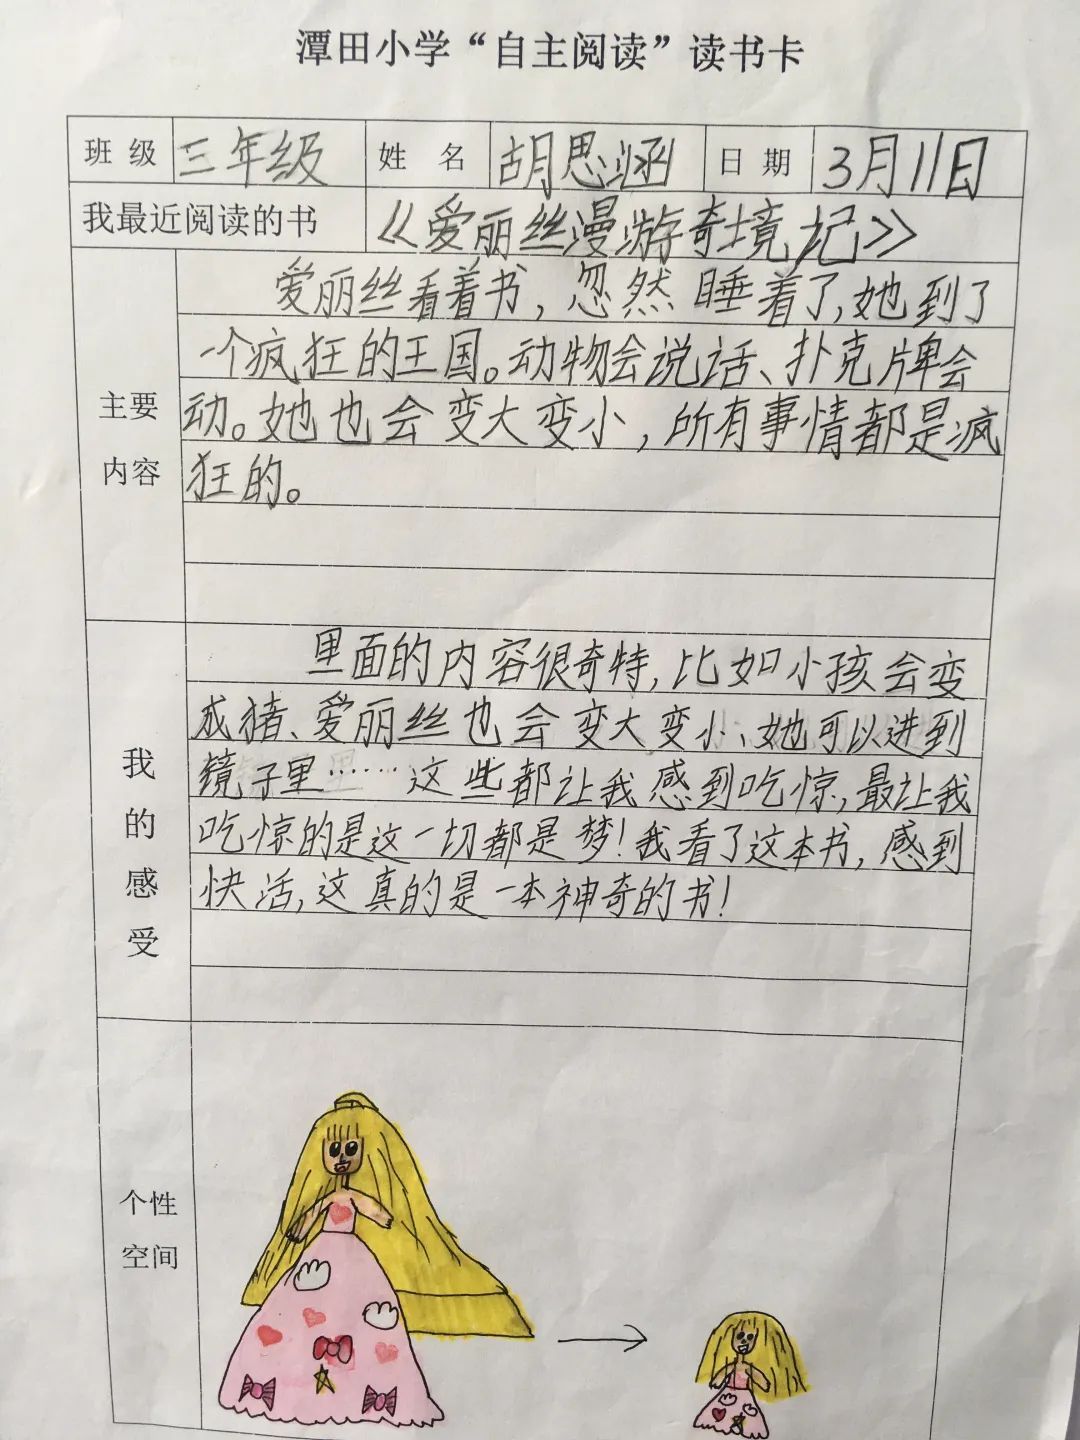 潭田小学“自主阅读”读书卡
班 级 三年级 姓 名 胡思涵 日 期 3月11日
我最近阅读的书 《爱丽丝漫游奇境记》
主要
内容
爱丽丝看着书，忽然睡着了，她到了
一个疯狂的王国。动物会说话、扑克牌会
动。她也会变大变小，所有事情都是疯
狂的。
我
的
感
受
里面的内容很奇特，比如小孩会变
成猪、爱丽丝也会变大变小、她可以进到
镜子里……这些都让我感到吃惊，最让我
吃惊的是这一切都是梦！我看了这本书，感到
快活，这真的是一本神奇的书！
个性
空间